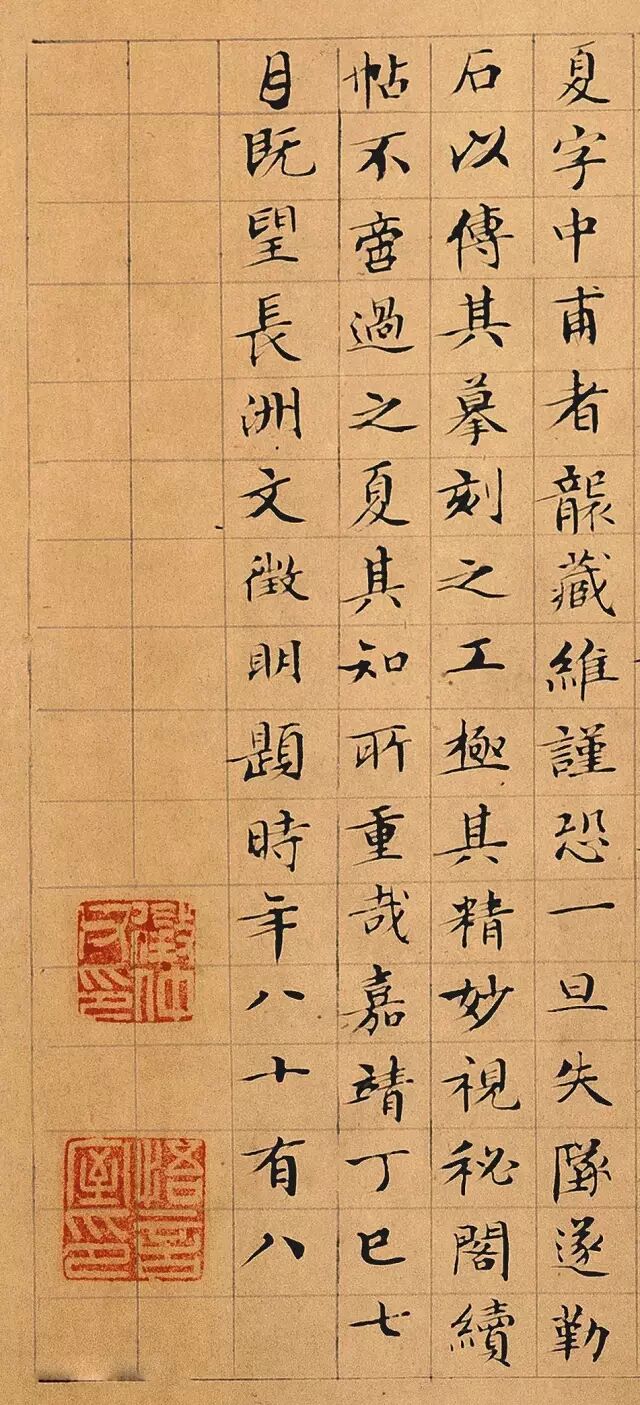 夏字中甫者襲藏維謹恐一旦失墜遂勒
石以傳其摹刻之工極其精妙視秘閣續
帖不啻過之夏其知所重哉嘉靖丁巳七
月既望長洲文徵明題時年八十有八
徵仲
父印
悟言
室印